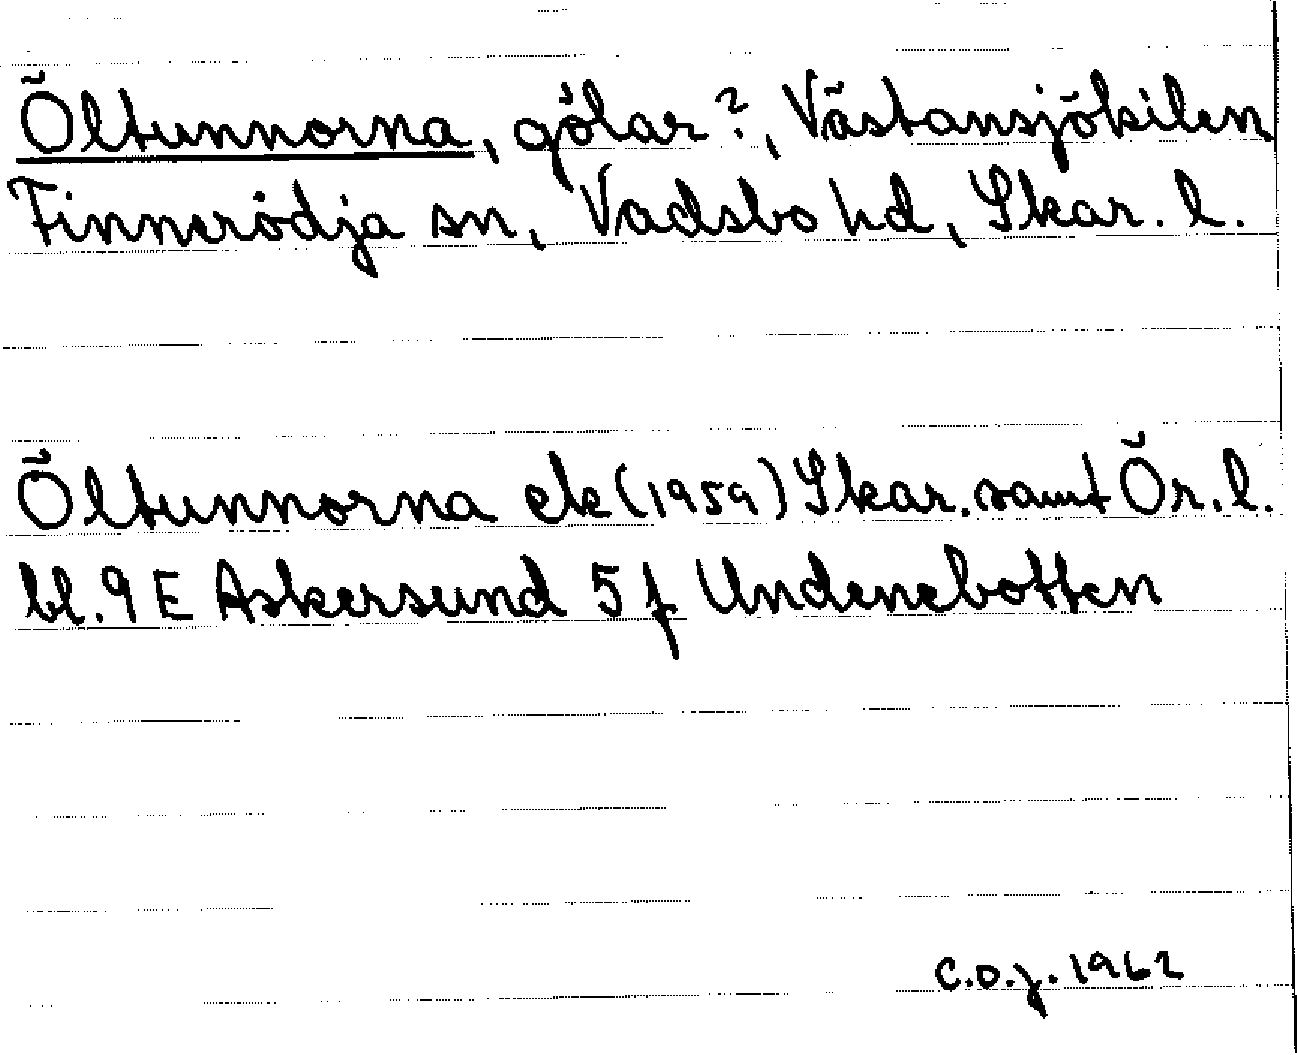 Öltunnorna, gölar?, Västansjökilen
Finnerödja sn, Vadsbo hd, Skar. l.
Öltunnorna ek (1959) Skar. samt Ör. l.
bl. 9 E Askersund 5 f Undenebotten
C.O.J. 1962